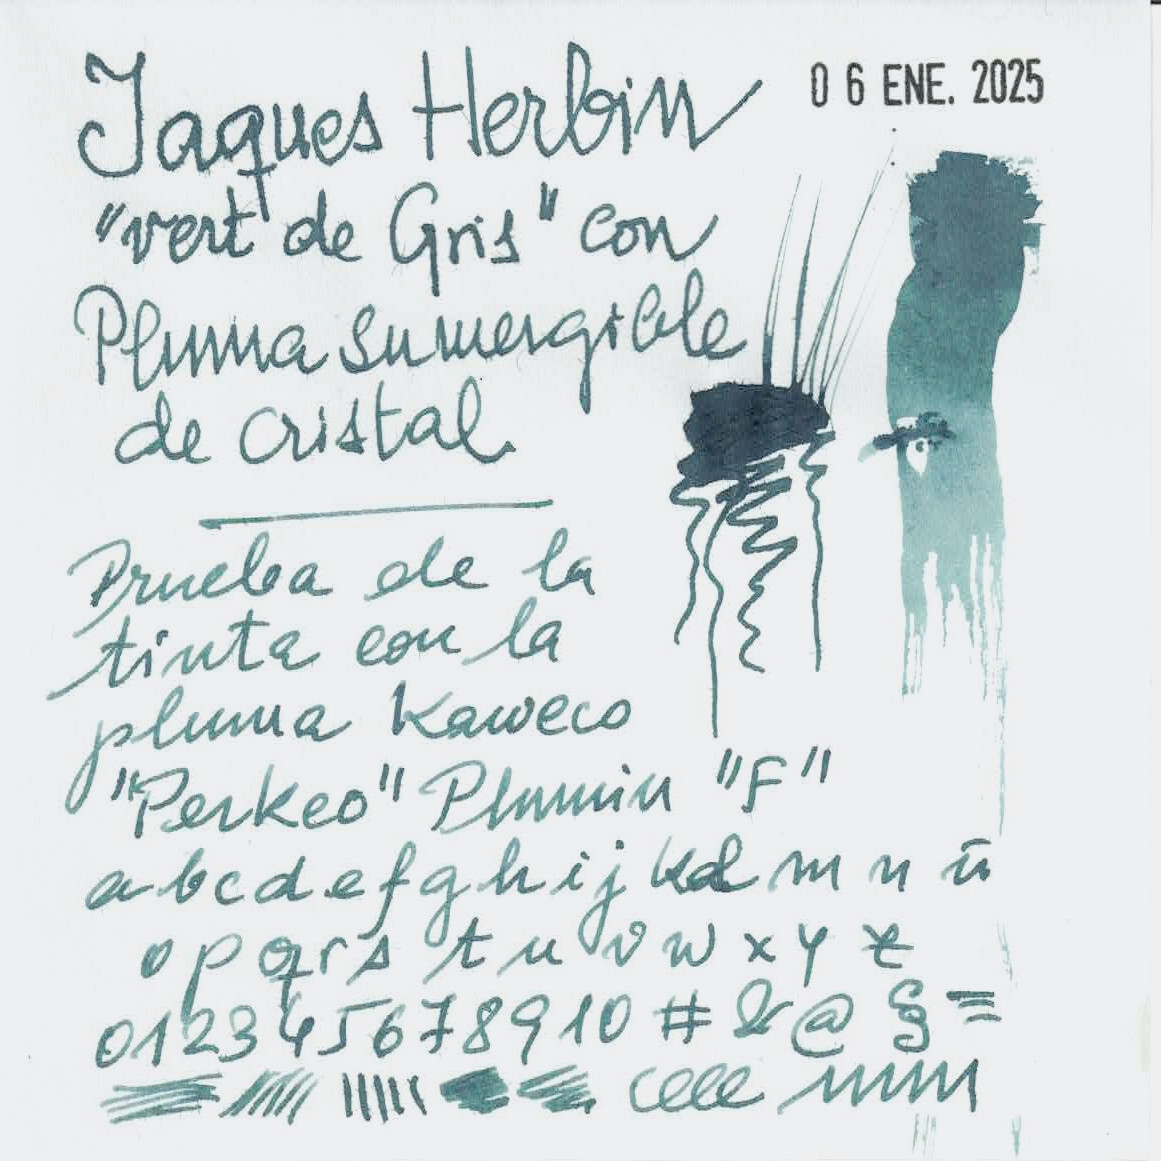 Jaques Herbin
06 ENE. 2025
"vert de Gris" con
Pluma sumergible
de cristal.
Prueba de la
tinta con la
pluma Kaweco
"Perkeo" Plumin "F"
a b c d e f g h i j k l m n ñ
o p q r s t u v w x y z
0 1 2 3 4 5 6 7 8 9 10 # & @ § =